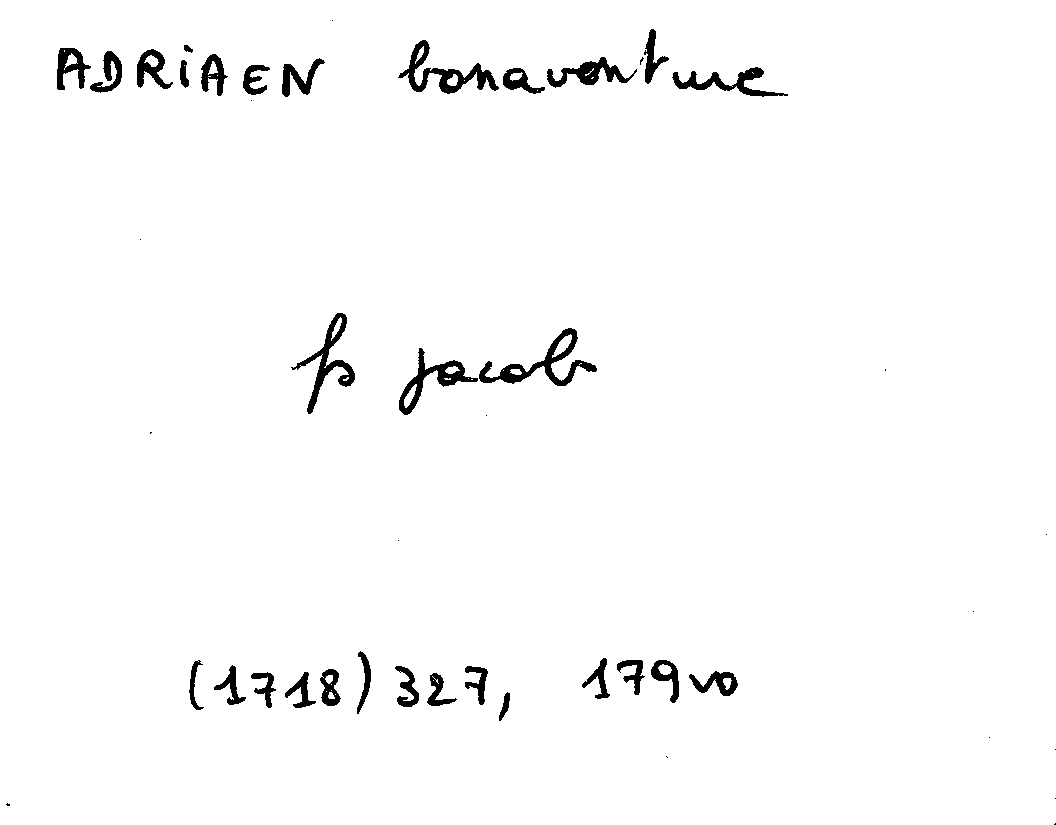 ADRiAEN bonaventure
fs jacob
(1718) 327, 179vo